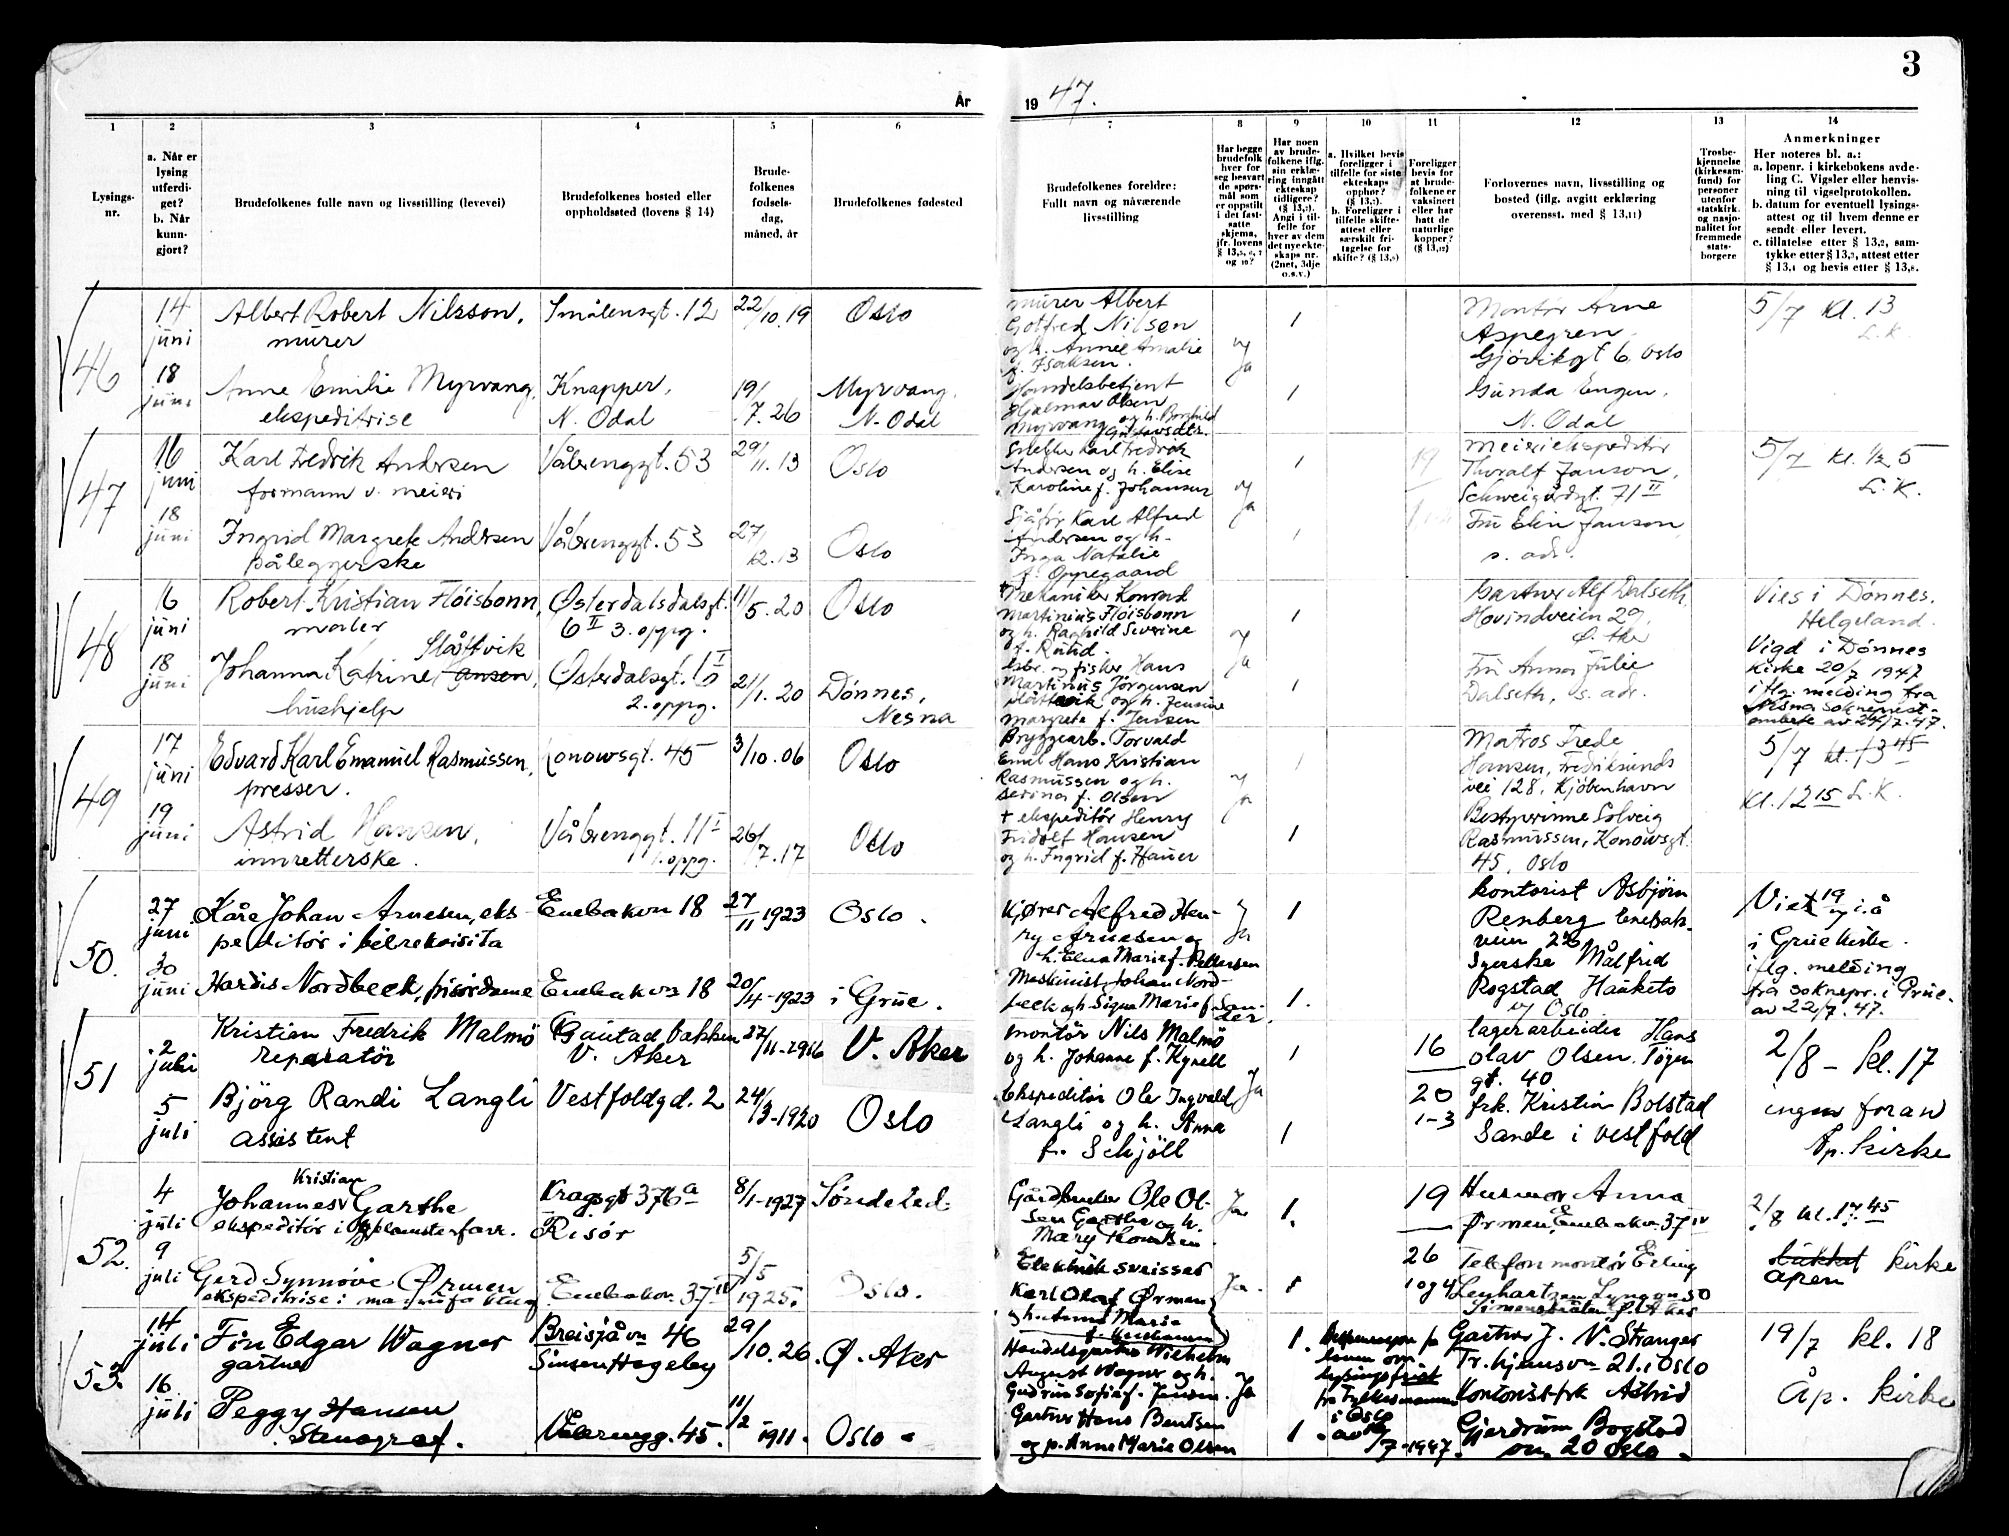 3
År
19 47.
1
2
3
4
5
6
7
8
9
10
11
12
13
14
Lysings-
nr.
a. Når er
lysing
utferdi-
get?
b. Når
kunn-
gjort?
Brudefolkenes fulle navn og livsstilling (levevei)
Brudefolkenes bosted eller
oppholdssted (lovens § 14)
Brude-
folkenes
fødsels-
dag,
måned, år
Brudefolkenes fødested
Brudefolkenes foreldre:
Fullt navn og nåværende
livsstilling
Har begge
brudefolk
hver for
seg besvart
de spørs-
mål som
er oppstilt
i det fast-
satte
skjema,
jfr. lovens
Har noen
av brude-
folkene iflg.
sin erklæ-
ring inngått
ekteskap
tidligere?
Angi i til-
felle for
hver av dem
det nye ekte-
skaps nr.
(2net, 3dje
o.s.v.)
a. Hvilket bevis
foreligger i
tilfelle for siste
ekteskaps
opphør?
b. Foreligger i
tilfelle skifte-
attest eller
særskilt fri-
tagelse for
skifte?
Foreligger
bevis for
at brude-
folkene er
vaksinert
eller har
hatt de
naturlige
kopper?
Forlovernes navn, livsstilling og
bosted (iflg. avgitt erklæring
overensst. med § 13,11)
Trosbe-
kjennelse
(kirkesam-
fund) for
personer
utenfor
statskirk.
og nasjo-
nalitet for
fremmede
stats-
borgere
Anmerkninger
Her noteres bl. a.:
a. løpenr. i kirkebokens avde-
ling C. Vigsler eller henvis-
ning til vigselprotokollen.
b. datum for eventuell lysings-
attest og til hvem denne er
sendt eller levert.
c. tillatelse etter § 13,2, sam-
tykke etter § 13,3, attest etter
§ 13,4 og bevis etter § 13,8.
46
14
juni
18
juni
Albert Robert Nilsson,
murer
Smålensgt. 12
22/10.19
Oslo
Anne Emilie Myrvang,
ekspeditrise
Knapper,
N. Odal
19/7.26
Myrvang,
N. Odal
murer Albert
Gotfred Nilsen
og h. Annie Amalie
f. Isaksen.
Handelsbetjent
Hjalmar Olsen
Myrvang og h. Borghild
Gustavsdtr.
Ja
1
1
Montør Arne
Aspegren,
Gjøvikgt 6. Oslo
Gunda Engen,
N. Odal
5/7 kl. 13
L.K.
47
16
juni
18
juni
Karl Fredrik Andersen
formann v. meieri
Vålerenggt. 53
29/11.13
Oslo
Ingrid Margrete Andersen
påleggerske
Vålerenggt. 53
27/12.13
Oslo
Karl Fredrik
Andersen og h. Elise
Karoline f. Johansen
Sjåfør Karl Alfred
Andersen og h.
Inga Natalie
f. Oppegaard
Ja
1
1
19
Meieriekspeditør
Thoralf Janson,
Schweigårdsgt. 71 II
Fru Elin Janson,
s. adr.
5/7 kl. 1/2 5
L.K.
48
16
juni
18
juni
Robert Kristian Fløisbonn,
maler
Østerdalsdalsgt.
6 II 3. oppg.
11/5.20
Oslo
Slåttvik
Johanna Katrine Jansen,
hushjelp
Østerdalsgt. 1 I
2. oppg.
21/1.20
Dønnes,
Nesna
Mekaniker Konrad
Martinius Fløisbonn
og h. Ragnhild Severine
f. Rund.
og fisker Hans
Martinus Jørgensen
Slåttevik og h. Jensine
Margrete f. Jensen
Ja
1
1
Gartner Alf Dalseth
Hovindveien 29,
Ø. Aker
Fru Anna Julie
Dalseth, s. adr.
Vies i Dønnes,
Helgeland.
Vigd i Dønnes
kirke 20/7 1947
iflg. melding fra
Nesna sokneprest-
embete av 24/7.47.
49
17
juni
19
juni
Edvard Karl Emanuel Rasmussen,
presser.
Konowsgt. 45
3/10.06
Oslo
Astrid Hansen,
innretterske.
Vålerenggt. 11 I
1. oppg.
26/7.17
Oslo
Bryggearb. Torvald
Emil Hans Kristian
Rasmussen og h.
Serina f. Olsen
+ ekspeditør Henry
Fridolf Hansen
og h. Ingrid f. Hauer
Ja
1
1
Matros Frede
Hansen, Fredriksunds
vei 128, Kjøbenhavn
Bestyrerinne Solveig
Rasmussen, Konowsgt.
45, Oslo
5/7 kl. 13 45
Kl. 12 15 L.K.
50.
27
juni
30
juni
Kåre Johan Arnesen, eks-
peditør i bilrekvisita
Enebakvn 18
27/11 1923
Oslo.
Hardis Nordbeck, frisørdame
Enebakvn 18
20/4-1923
i Grue.
Kjører Alfred Hen-
ry Arnesen og
h. Elna Marie f. Pettersen
Maskinist Johan Nord-
beck og h. Signe Marie f. San-
der.
Ja
1
1.
kontorist Asbjørn
Renberg Enebak-
veien 22
Syerske Målfrid
Rogstad Hauketo
v/ Oslo
Viet 19/7 i å
i Grue kirke.
iflg. melding
fra soknepr. i Grue.
av 22/7.47.
51
2
juli
5
juli
Kristian Fredrik Malmö
reparatör
Gaustad bakken
V. Aker
27/11-1916
V. Aker
Björg Randi Langli
assistent
Vestfoldgd. 2
24/3-1920
Oslo
montör Nils Malmö
og h. Johanne f. Kynell
Ekspeditör Ole Ingvald
Langli og h. Anna
f. Schjöll
Ja
1
1
16
20
1-3
lagerarbeider Hans
Olav Olsen
gt. 40
frk. Kristin Bolstad
Sande i Vestfold
2/8 - kl. 17
ingen foran
Åp. kirke
52.
4
juli
9
juli
Kristian
Johannes Garthe
ekspeditør i
Kragsgt 37b a
Risör
8/1-1927
Søndeled.
Gerd Synnøve Ørmen
ekspeditrise i
Enebakvn 37 IV
5/5
1925.
Oslo.
Gårdbruker Ole Ol-
sen Garthe og h.
Mary Thomsen.
Elektrisk sveisser
Karl Olaf Ørmen
og h. Anna Marie
Ja
Ja
1.
1
19
26
1 og 4
Husmor Anna
Ørmen, Enebakvn. 37 IV
Telefonmontør Erling
2/8 kl. 17.45
lukket kirke
åpen
53.
14
juli
16
juli
Finn Edgar Wagner
gartner
Breisjåvn 46
Sinsen Hageby
29/10.26.
Ø. Aker
Peggy Hansen
Stenograf.
Vålerengg. 45.
11/2 1911.
Oslo.
Handelsgartner Wilhelm
August Wagner og h.
Gudrun Sofie f. Jensen.
Gartner Hans Bentsen
og p. Anne Marie Olsen
Ja
1.
1
Dispensasjon fra
loven om
lysingsfrist
fra Fylkesmannen
i Oslo
/7-1947.
Gartner J. N. Stranger
Tr.hjemsvn 21. i Oslo
Kontorist frk Astrid
Gjerdrum Bogstad
vn. 20 Oslo.
19/7 kl. 18
Åp. kirke